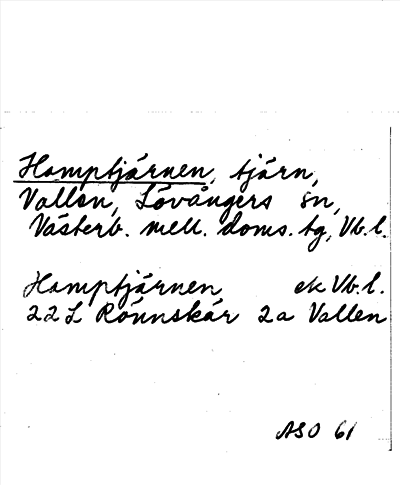 Hamptjärnen, tjärn,
Vallen, Lövångers sn,
Västerb. mell. doms. tg, Vb. l.
Hamptjärnen ek Vb. l.
22 L Rönnskär 2a Vallen
ASO 61